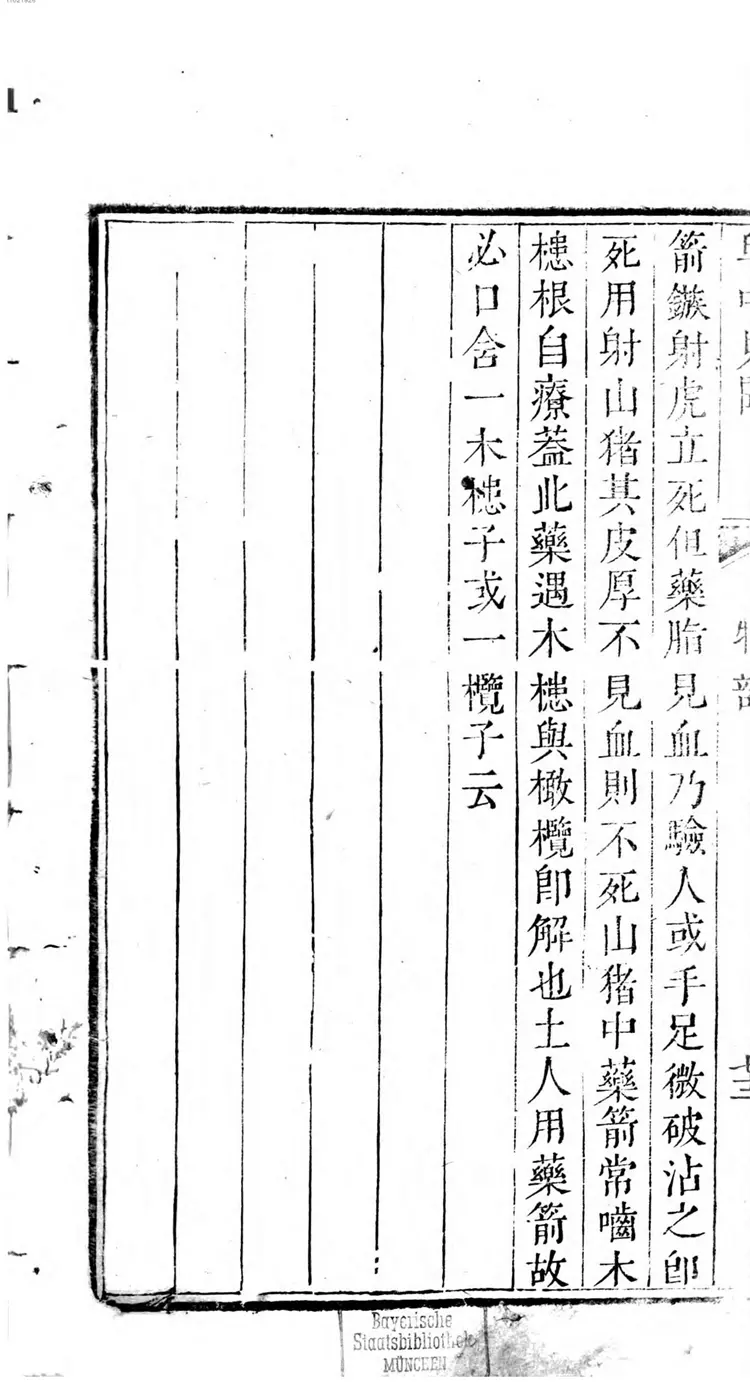 箭鏃射虎立死但藥脂見血乃驗人或手足微破沾之卽
死用射山猪其皮厚不見血則不死山猪中藥箭常嚙木
槵根自療蓋此藥遇木槵與橄欖卽解也土人用藥箭故
必口含一木槵子或一欖子云
Bayerische
Staatsbibliothek
MÜNCHEN